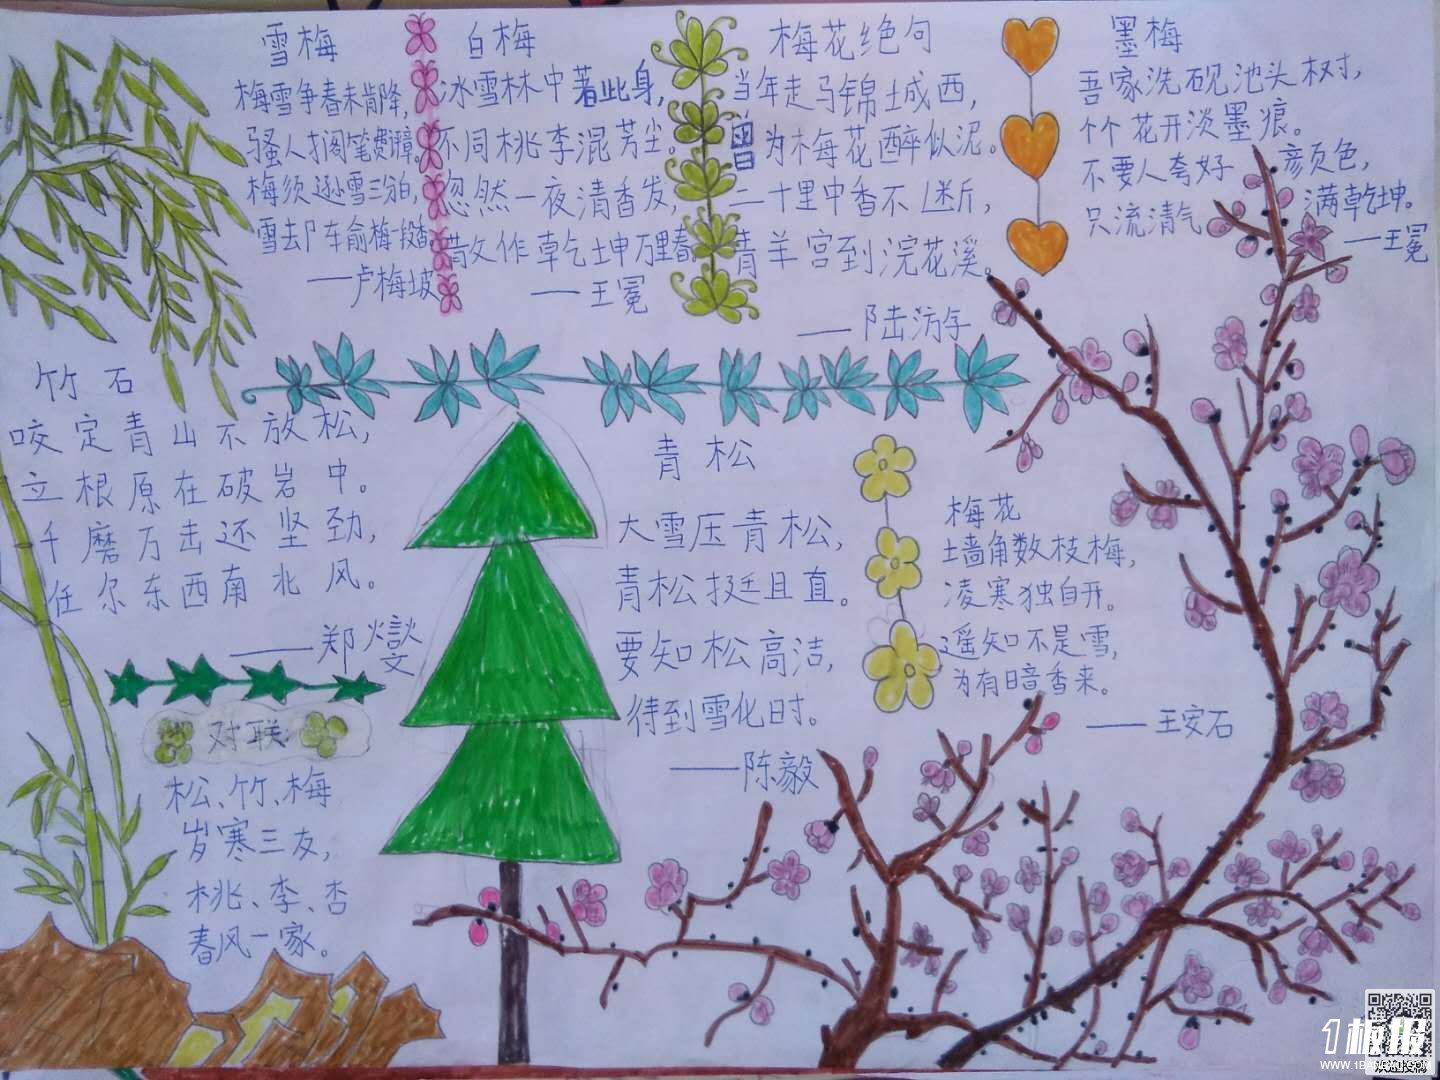 雪梅
梅雪争春未肯降,
骚人搁笔费评章。
梅须逊雪三分白,
雪去卩车俞梅一段香
——卢梅坡
白梅
冰雪林中著此身,
不同桃李混芳尘。
忽然一夜清香发,
散文作乾坤万里春
——王冕
梅花绝句
当年走马锦城西,
曾为梅花醉似泥。
二十里中香不断,
青羊宫到浣花溪。
——陆游
墨梅
吾家洗砚池头树,
个个花开淡墨痕。
不要人夸好颜色,
只流清气满乾坤。
——王冕
竹石
咬定青山不放松,
立根原在破岩中。
千磨万击还坚劲,
任尔东西南北风。
——郑燮
青松
大雪压青松,
青松挺且直。
要知松高洁,
待到雪化时。
——陈毅
梅花
墙角数枝梅,
凌寒独自开。
遥知不是雪,
为有暗香来。
——王安石
对联
松、竹、梅
岁寒三友,
桃、李、杏
春风一家。
1板报
WWW.1BANBAO.COM
欢迎投稿